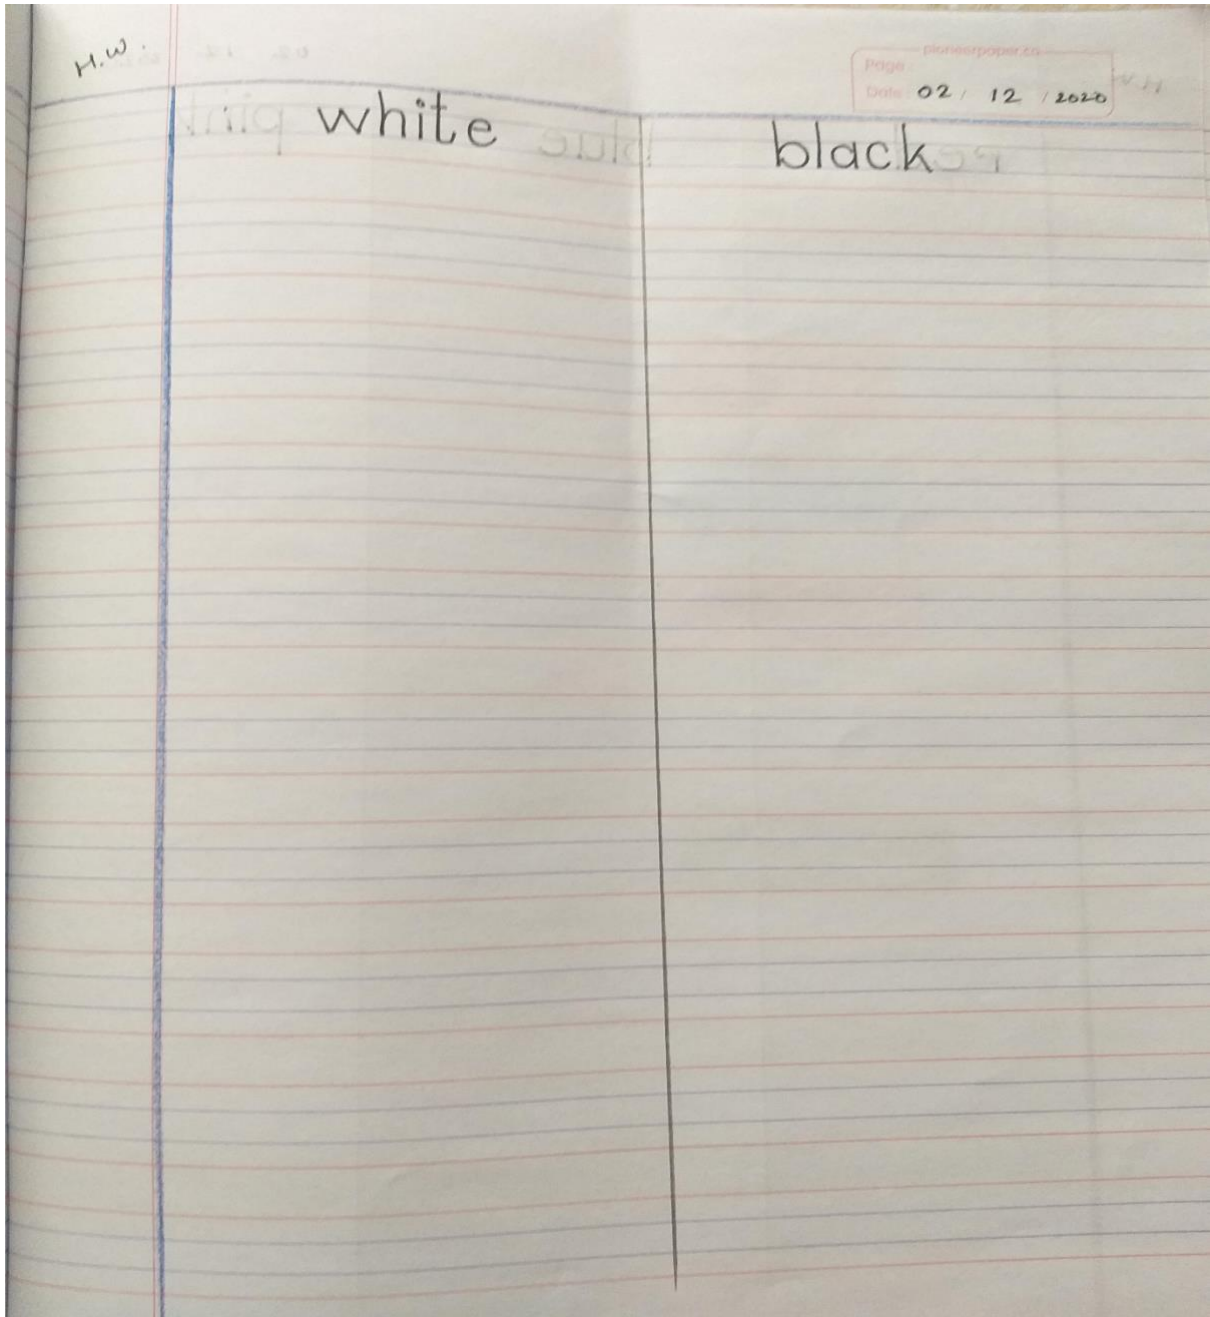 H.W.
pioneerpaper.co
Page
Date 02 / 12 / 2020
white black